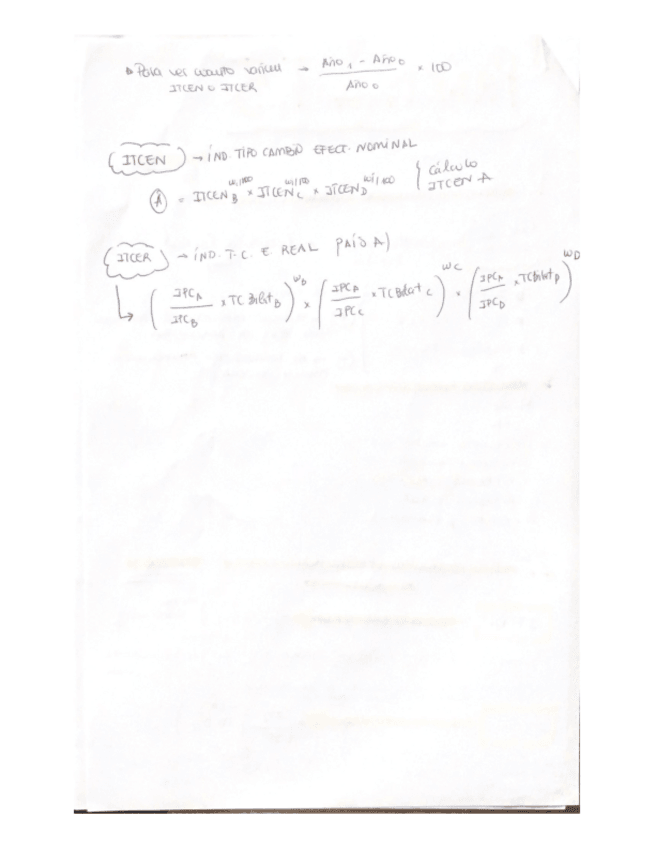 Para ver cuanto varían → Año 1 - Año 0 / Año 0 × 100
ITCEN o ITCER
ITCEN → ÍND. TIPO CAMBIO EFECT. NOMINAL
A = ITCEN_B^wi/100 × ITCEN_C^wi/100 × ITCEN_D^wi/100 { Cálculo
ITCEN A
ITCER → ÍND. T.C. E. REAL PAÍS A)
↳ (IPC_A / IPC_B × TC Bilat_B)^W_B × (IPC_A / IPC_C × TC Bilat_C)^W_C × (IPC_A / IPC_D × TC Bilat_D)^W_D